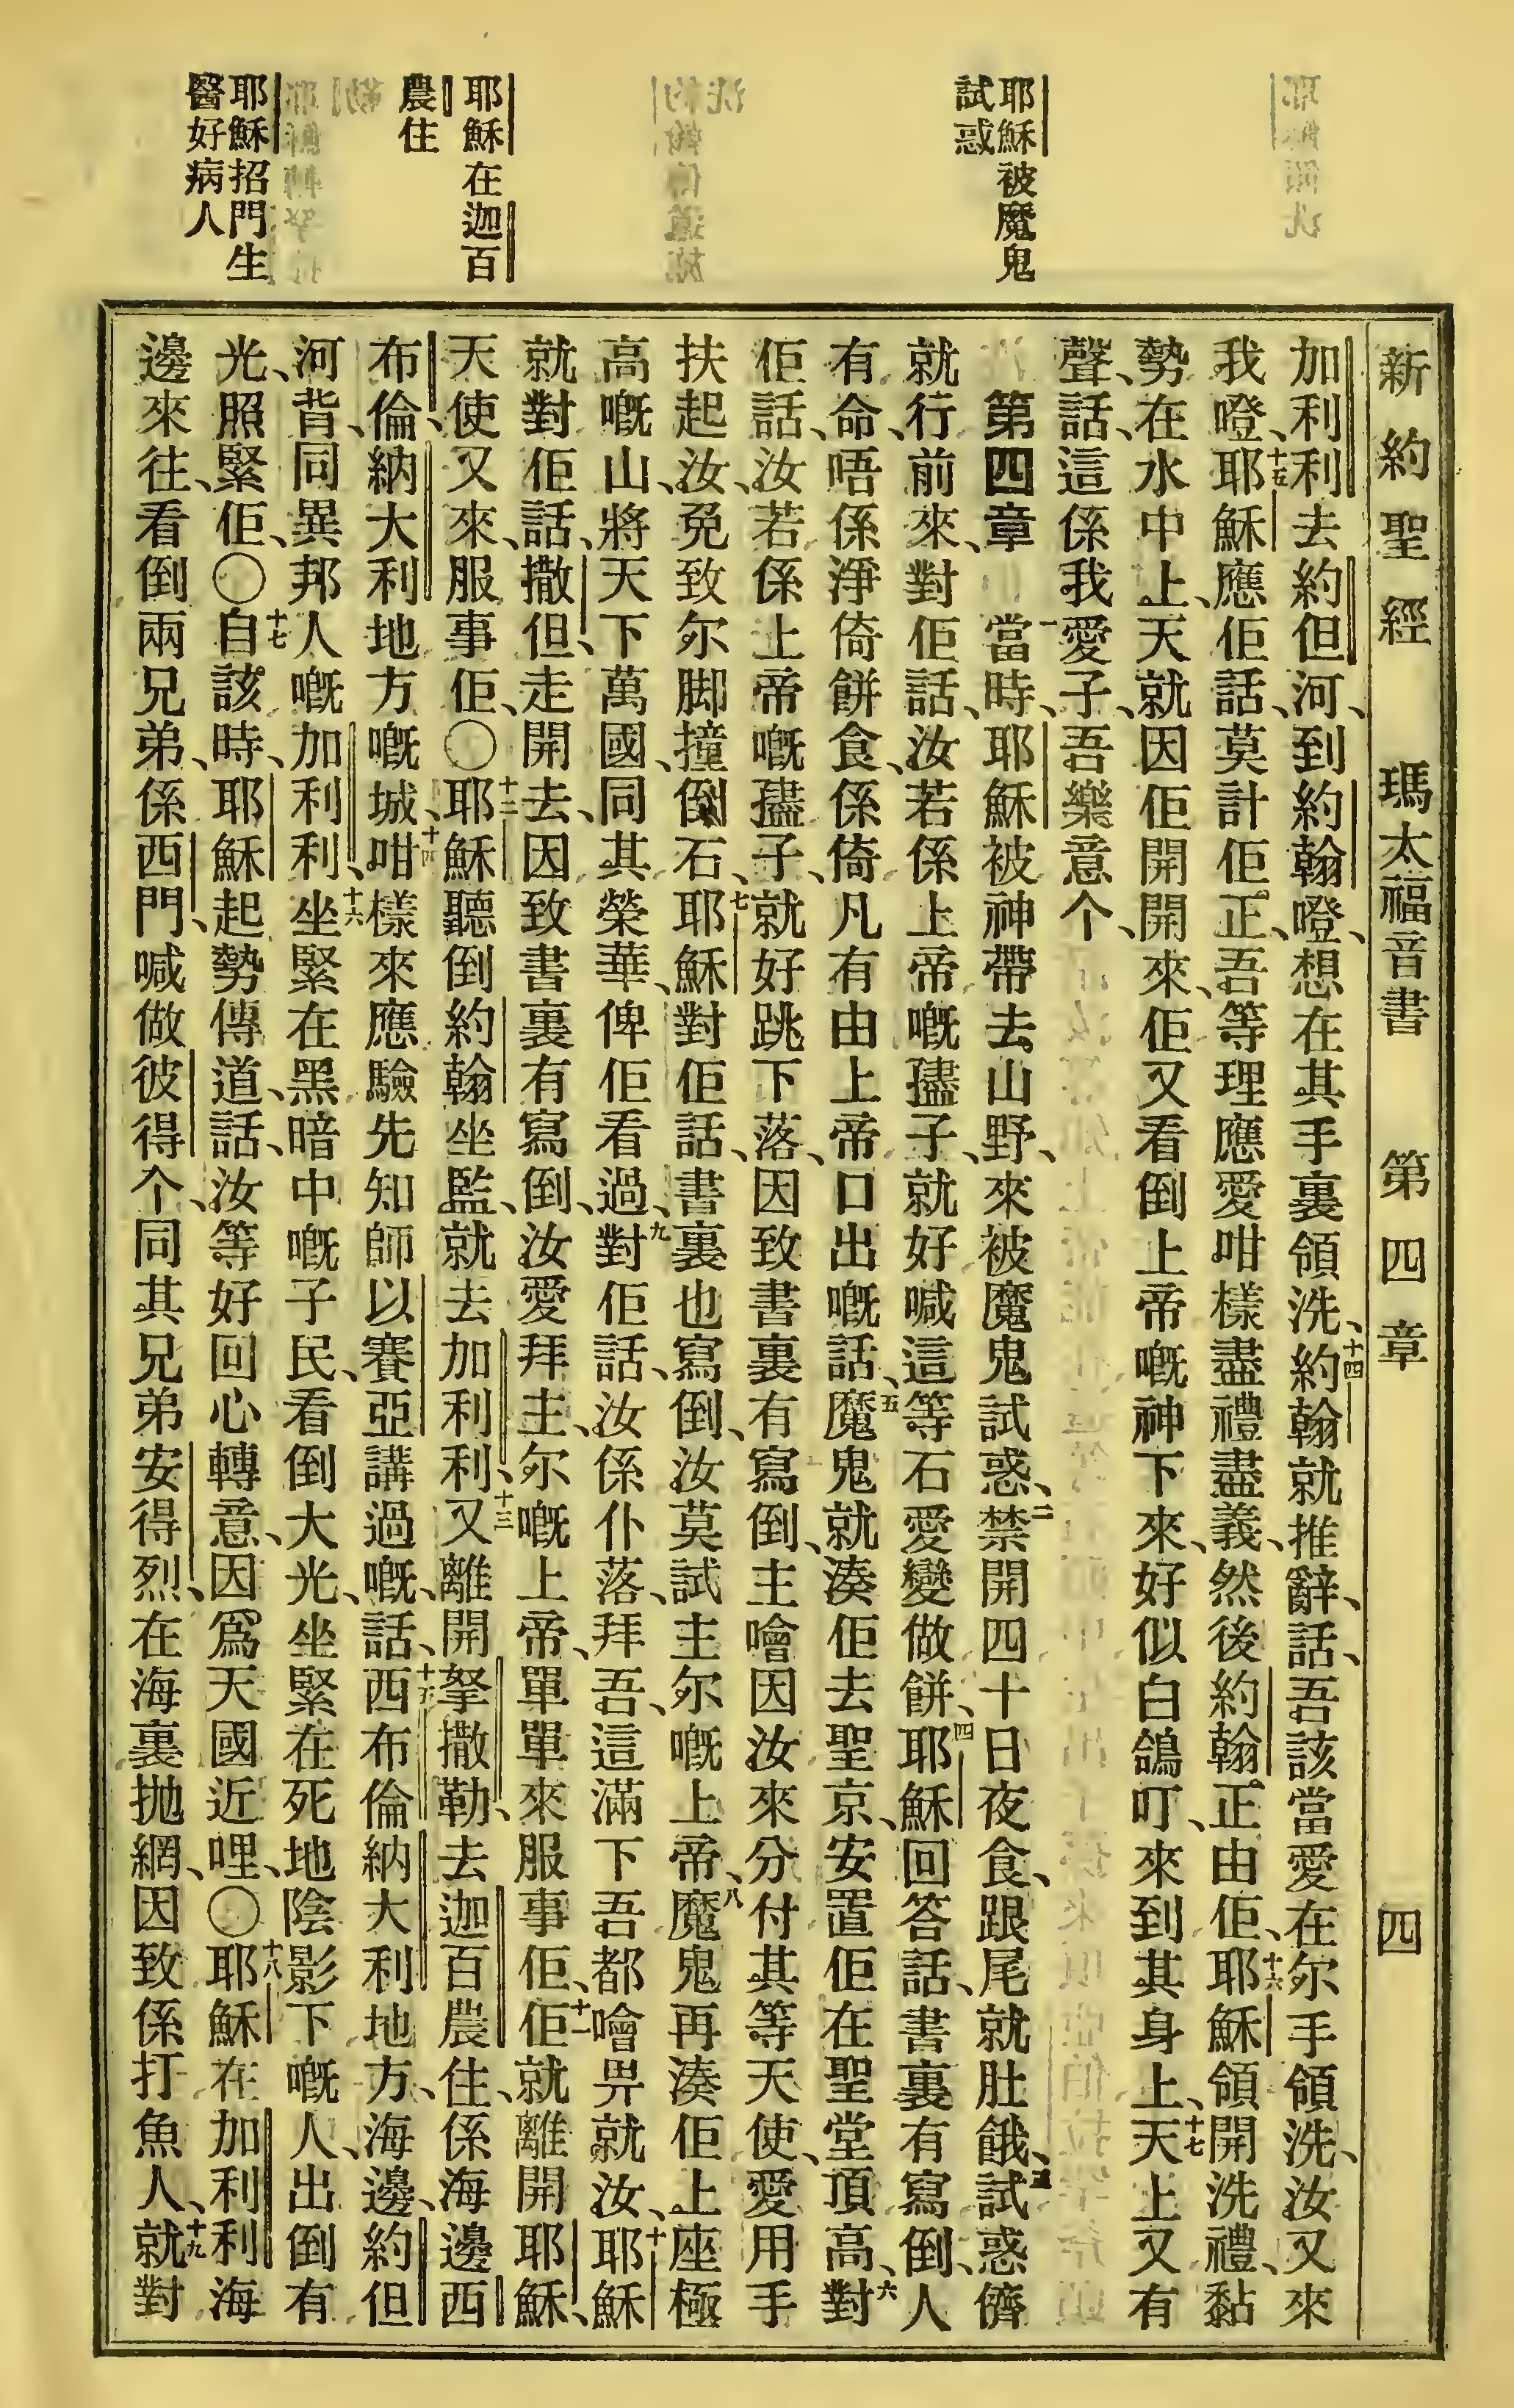 新約聖經 瑪太福音書 第四章 四
耶穌被魔鬼
試惑
耶穌在迦百
農住
耶穌招門生
醫好病人
加利利去約但河、到約翰嶝、想在其手裏領洗、十四約翰就推辭、話、吾該當愛在尔手領洗、汝又來
我嶝、十五耶穌應佢話、莫計佢正、吾等理應愛咁樣盡禮盡義、然後約翰正由佢、十六耶穌領開洗禮、黏
勢在水中上、天就因佢開開來、佢又看倒上帝嘅神下來、好似白鴿叮、來到其身上、十七天上又有
聲、話、這係我愛子、吾樂意个、
第四章 一當時、耶穌被神帶去山野、來被魔鬼試惑、二禁開四十日夜食、跟尾就肚餓、三試惑儕
就行前來、對佢話、汝若係上帝嘅孻子、就好喊這等石愛變做餅、四耶穌回答話、書裏有寫倒、人
有命、唔係淨倚餅食、係倚凡有由上帝口出嘅話、五魔鬼就湊佢去聖京、安置佢在聖堂頂高、六對
佢話、汝若係上帝嘅孻子、就好跳下落、因致書裏有寫倒、主噲因汝來分付其等天使、愛用手
扶起汝、免致尔脚撞倒石、七耶穌對佢話、書裏也寫倒、汝莫試主尔嘅上帝、八魔鬼再湊佢上座極
高嘅山、將天下萬國、同其榮華、俾佢看過、九對佢話、汝係仆落、拜吾、這滿下吾都噲畀就汝、十耶穌
就對佢話、撒但、走開去、因致書裏有寫倒、汝愛拜主、尔嘅上帝、單單來服事佢、十一佢就離開耶穌、
天使又來、服事佢、〇十二耶穌聽倒約翰坐監、就去加利利、十三又離開拏撒勒、去迦百農住、係海邊西
布倫、納大利地方嘅城、十四咁樣來應驗先知師以賽亞講過嘅、話、十五西布倫納大利地方、海邊、約但
河背、同異邦人嘅加利利、十六坐緊在黑暗中嘅子民、看倒大光、坐緊在死地陰影下嘅人、出倒有
光、照緊佢、〇十七自該時、耶穌起勢傳道、話、汝等好回心轉意、因爲天國近哩、〇十八耶穌在加利利海
邊來往、看倒兩兄弟、係西門、喊做彼得个、同其兄弟安得烈、在海裏抛網、因致係打魚人、十九就對